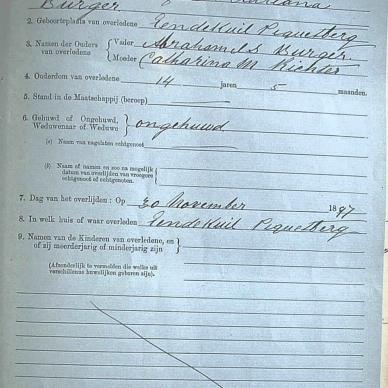 Burger
2. Geboorteplaats van overledene Eendekuil Piquetberg
3. Namen der Ouders van overledene { Vader Abraham I S Burger
Moeder Catharina M Richter
4. Ouderdom van overledene 14 jaren 5 maanden.
5. Stand in de Maatschappij (beroep)
6. Gehuwd of Ongehuwd, Weduwenaar of Weduwe } ongehuwd
(a) Naam van nagelaten echtgenoot
(b) Naam of namen en zoo na mogelijk
datum van overlijden van vroegere
echtgenoot of echtgenoten.
7. Dag van het overlijden : Op 30 November 1897
8. In welk huis of waar overleden Eendekuil Piquetberg
9. Namen van de Kinderen van overledene, en
of zij meerderjarig of minderjarig zijn
(Afzonderlijk te vermelden die welke uit
verschillende huwelijken geboren zijn).